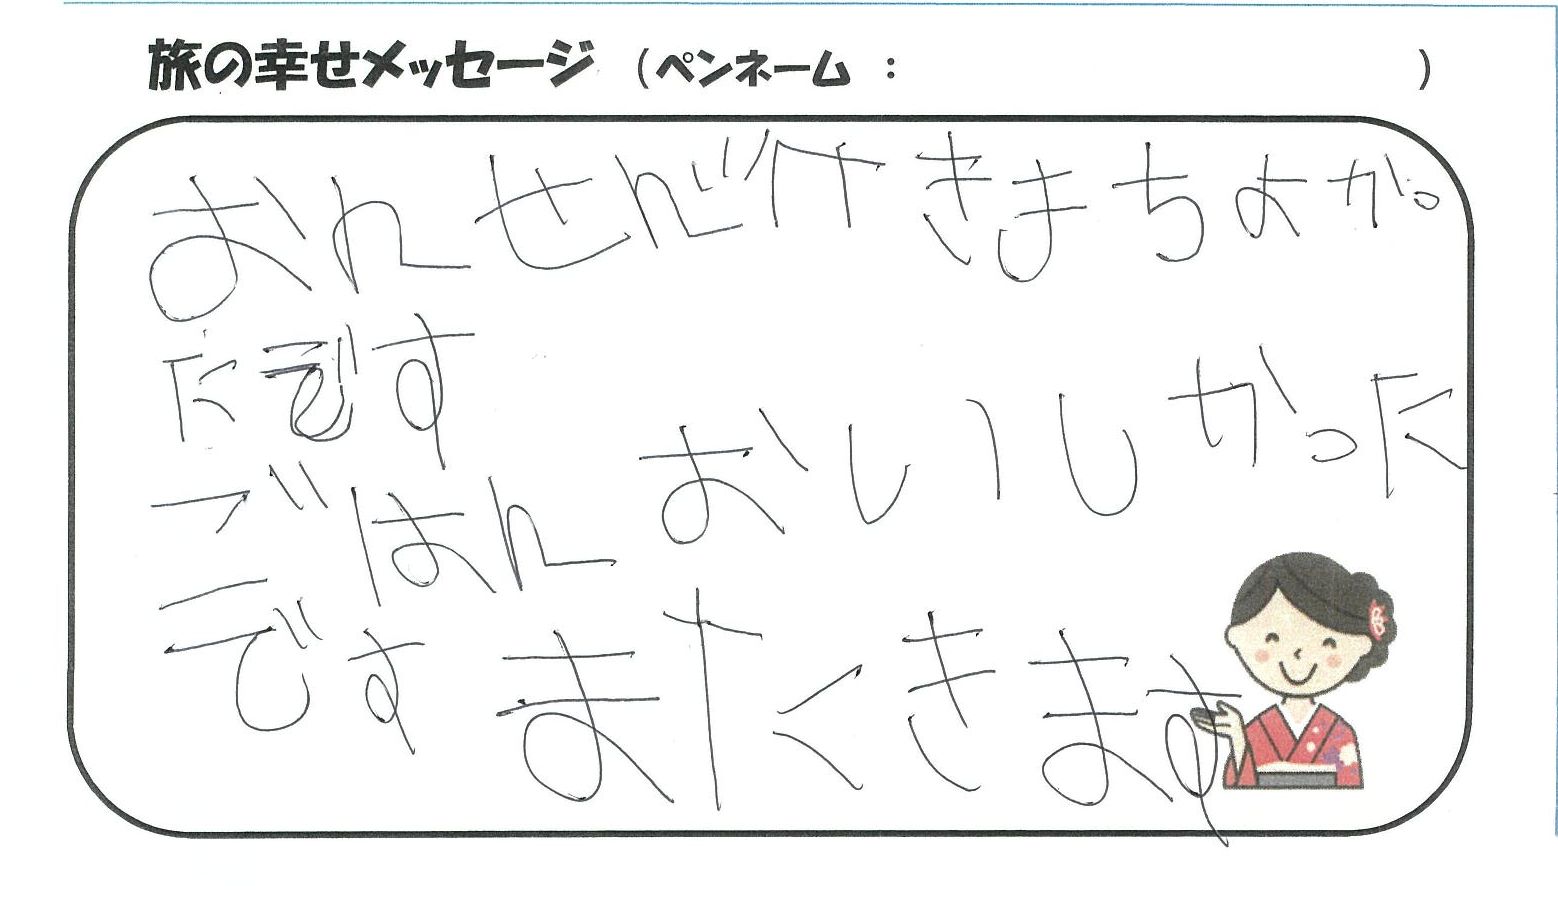 旅の幸せメッセージ (ペンネーム : )
おんせんど行きまちよかっ
たです
ごはんおいしかった
です またくきます